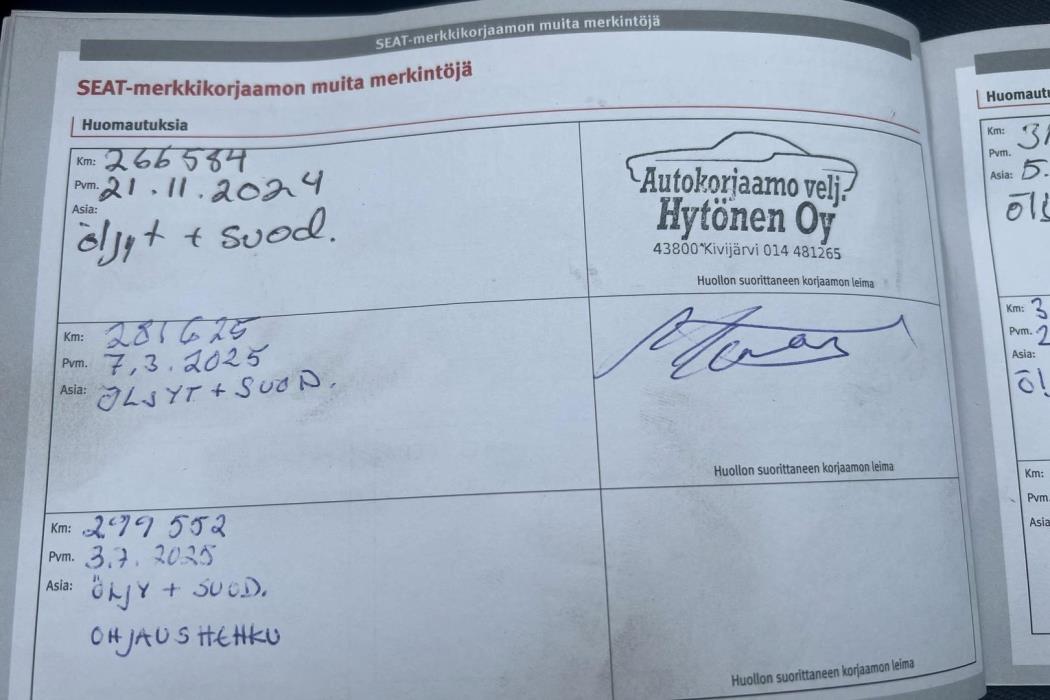 SEAT-merkkikorjaamon muita merkintöjä
SEAT-merkkikorjaamon muita merkintöjä
Huomautuksia
Km: 266584
Pvm. 21.11.2024
Asia:
öljyt + suod.
Autokorjaamo velj.
Hytönen Oy
43800 Kivijärvi 014 481265
Huollon suorittaneen korjaamon leima
Km: 281625
Pvm. 7.3.2025
Asia: ÖLJYT + SUOD.
Huollon suorittaneen korjaamon leima
Km: 299 552
Pvm. 3.7.2025
Asia: ÖLJY + SUOD.
OHJAUSHEHKU
Huollon suorittaneen korjaamon leima
Km:
Pvm.
Asia: 5.
Km: 3
Pvm. 2
Asia:
Km:
Pvm.